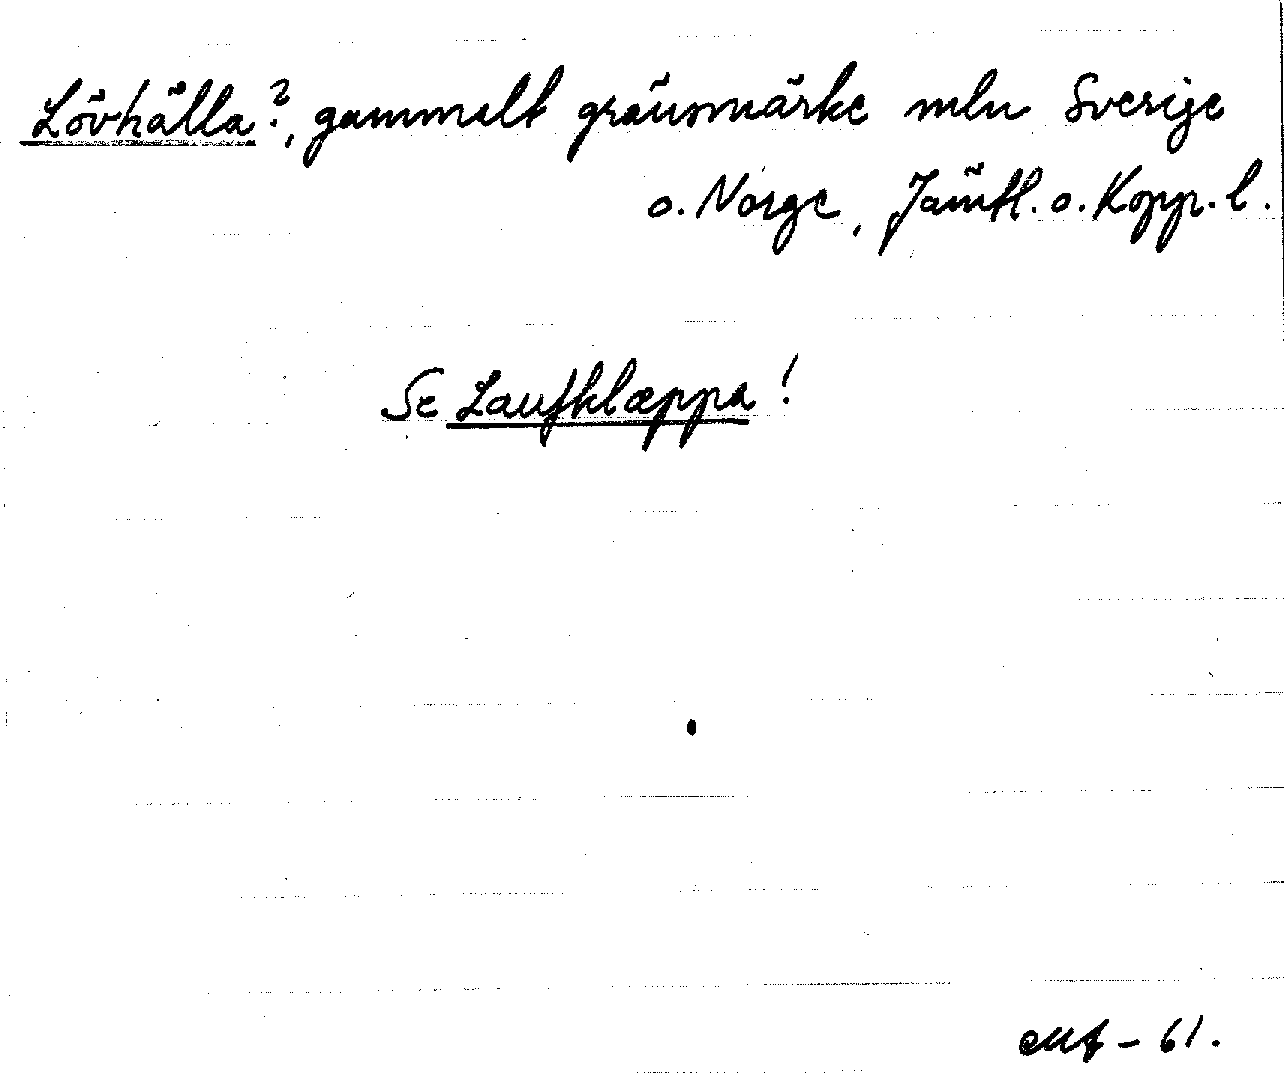 Lövhälla?, gammalt gränsmärke mln Sverige
o. Norge, Jämtl. o. Kopp. l.
Se Laufklæppa!
- 61.